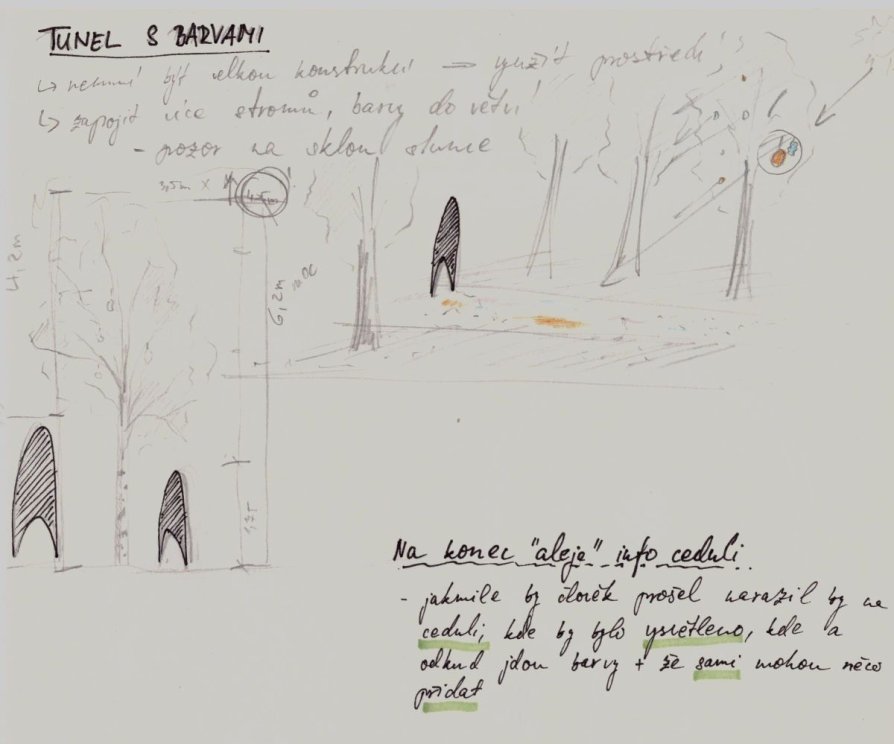 TUNEL S BARVAMI
↳ nemusí být velkou konstrukcí ⇒ využít prostředí
↳ zapojit více stromů, barvy do větví
- pozor na sklon slunce
3,5m ×
4,2m
6,2m
Na konec "aleje" info ceduli
- jakmile by člověk prošel narazil by na
ceduli, kde by bylo vysvětleno, kde a
odkud jdou barvy + že sami mohou něco
přidat